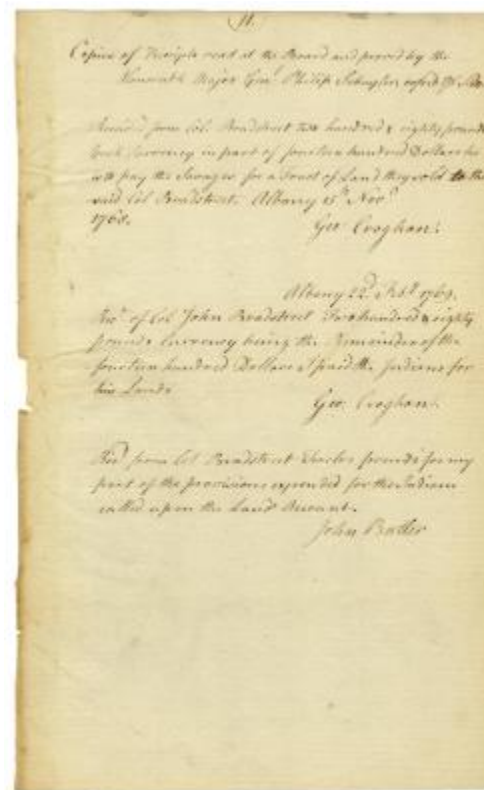 11.
Copies of Receipts read at the Board and proved by the
Honorable Major Genl. Philip Schuyler
Received from Col. Bradstreet two hundred & eighty pounds
York Currency in part of fourteen hundred Dollars he
will pay the Savages for a Tract of Land they sold to the
said Col Bradstreet. Albany 15th Novr.
1768.
Geo: Croghan.
Albany 22d. Feb. 1769.
Recd. of Col John Bradstreet Two hundred & eighty
pounds Currency being the Remainder of the
fourteen hundred Dollars I paid the Indians for
his Lands
Geo: Croghan.
Recd. from Col Bradstreet pounds for my
part of the provisions expended for the Indians
called upon the Land Account.
John Butler